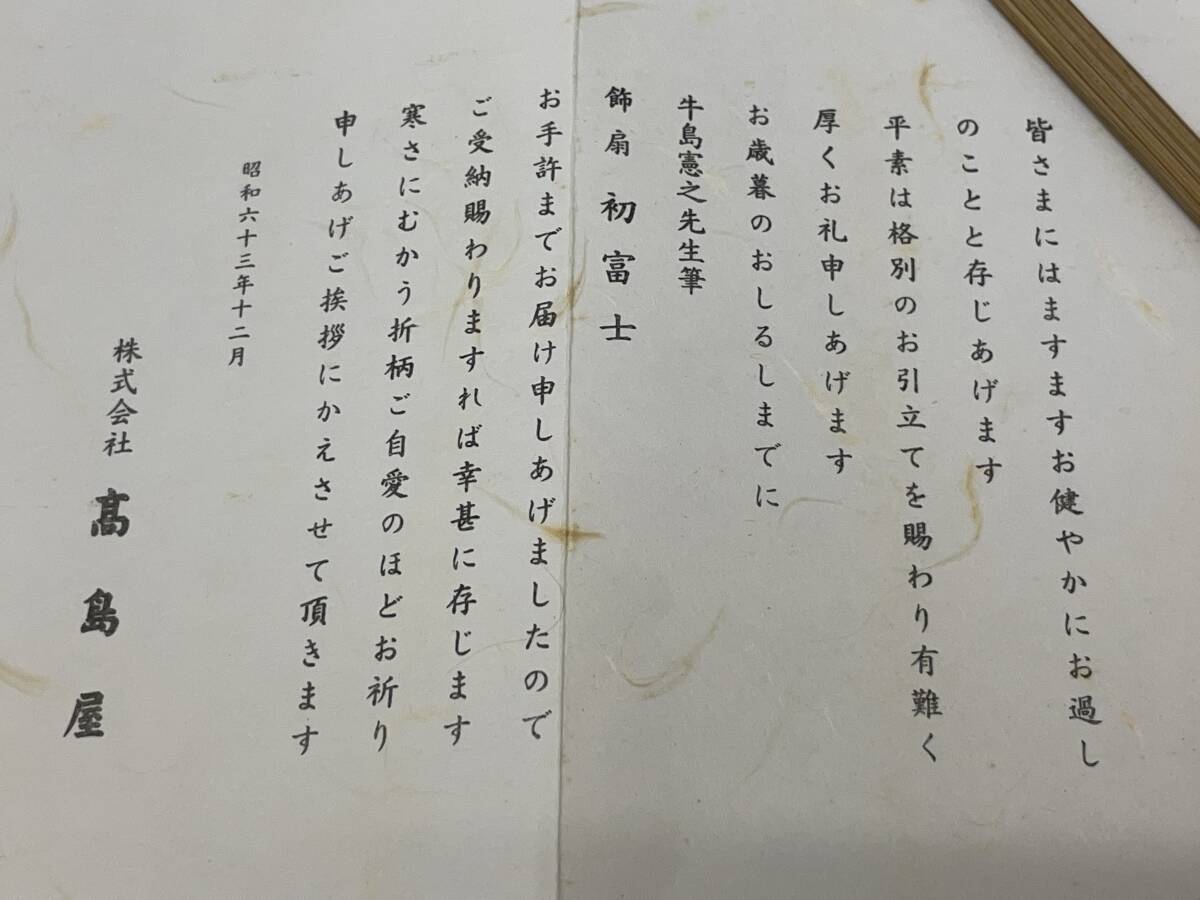 皆さまにはますますお健やかにお過し
のことと存じあげます
平素は格別のお引立てを賜わり有難く
厚くお礼申しあげます
お歳暮のおしるしまでに
牛島憲之先生筆
飾扇 初富士
お手許までお届け申しあげましたので
ご受納賜わりますれば幸甚に存じます
寒さにむかう折柄ご自愛のほどお祈り
申しあげご挨拶にかえさせて頂きます
昭和六十三年十二月
株式会社 髙島屋